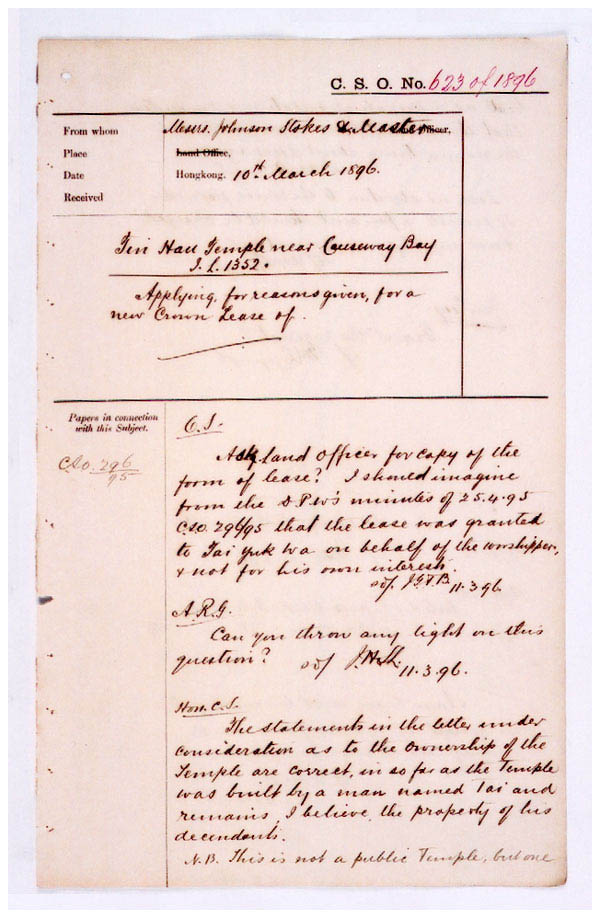 C. S. O. No. 623 of 1896
From whom Messrs. Johnson Stokes & Master Officer,
Place Land Office,
Date Hongkong. 10th March 1896.
Received
Tin Hau Temple near Causeway Bay
I. L. 1352.
Applying, for reasons given, for a
new Crown Lease of.
Papers in connection
with this Subject.
C.S.O. 296/95
C.S.
Ask Land Officer for copy of the
form of lease? I should imagine
from the D.P.W's minutes of 25.4.95
C.S.O. 296/95 that the lease was granted
to Tai Yuk Wa on behalf of the worshippers,
& not for his own interest.
11.3.96
A.R.G.
Can you throw any light on this
question? 11.3.96.
Hon. C.S.
The statements in the letter under
consideration as to the ownership of the
Temple are correct, in so far as the Temple
was built by a man named Tai and
remains, I believe, the property of his
decendants.
N.B. This is not a public Temple, but one